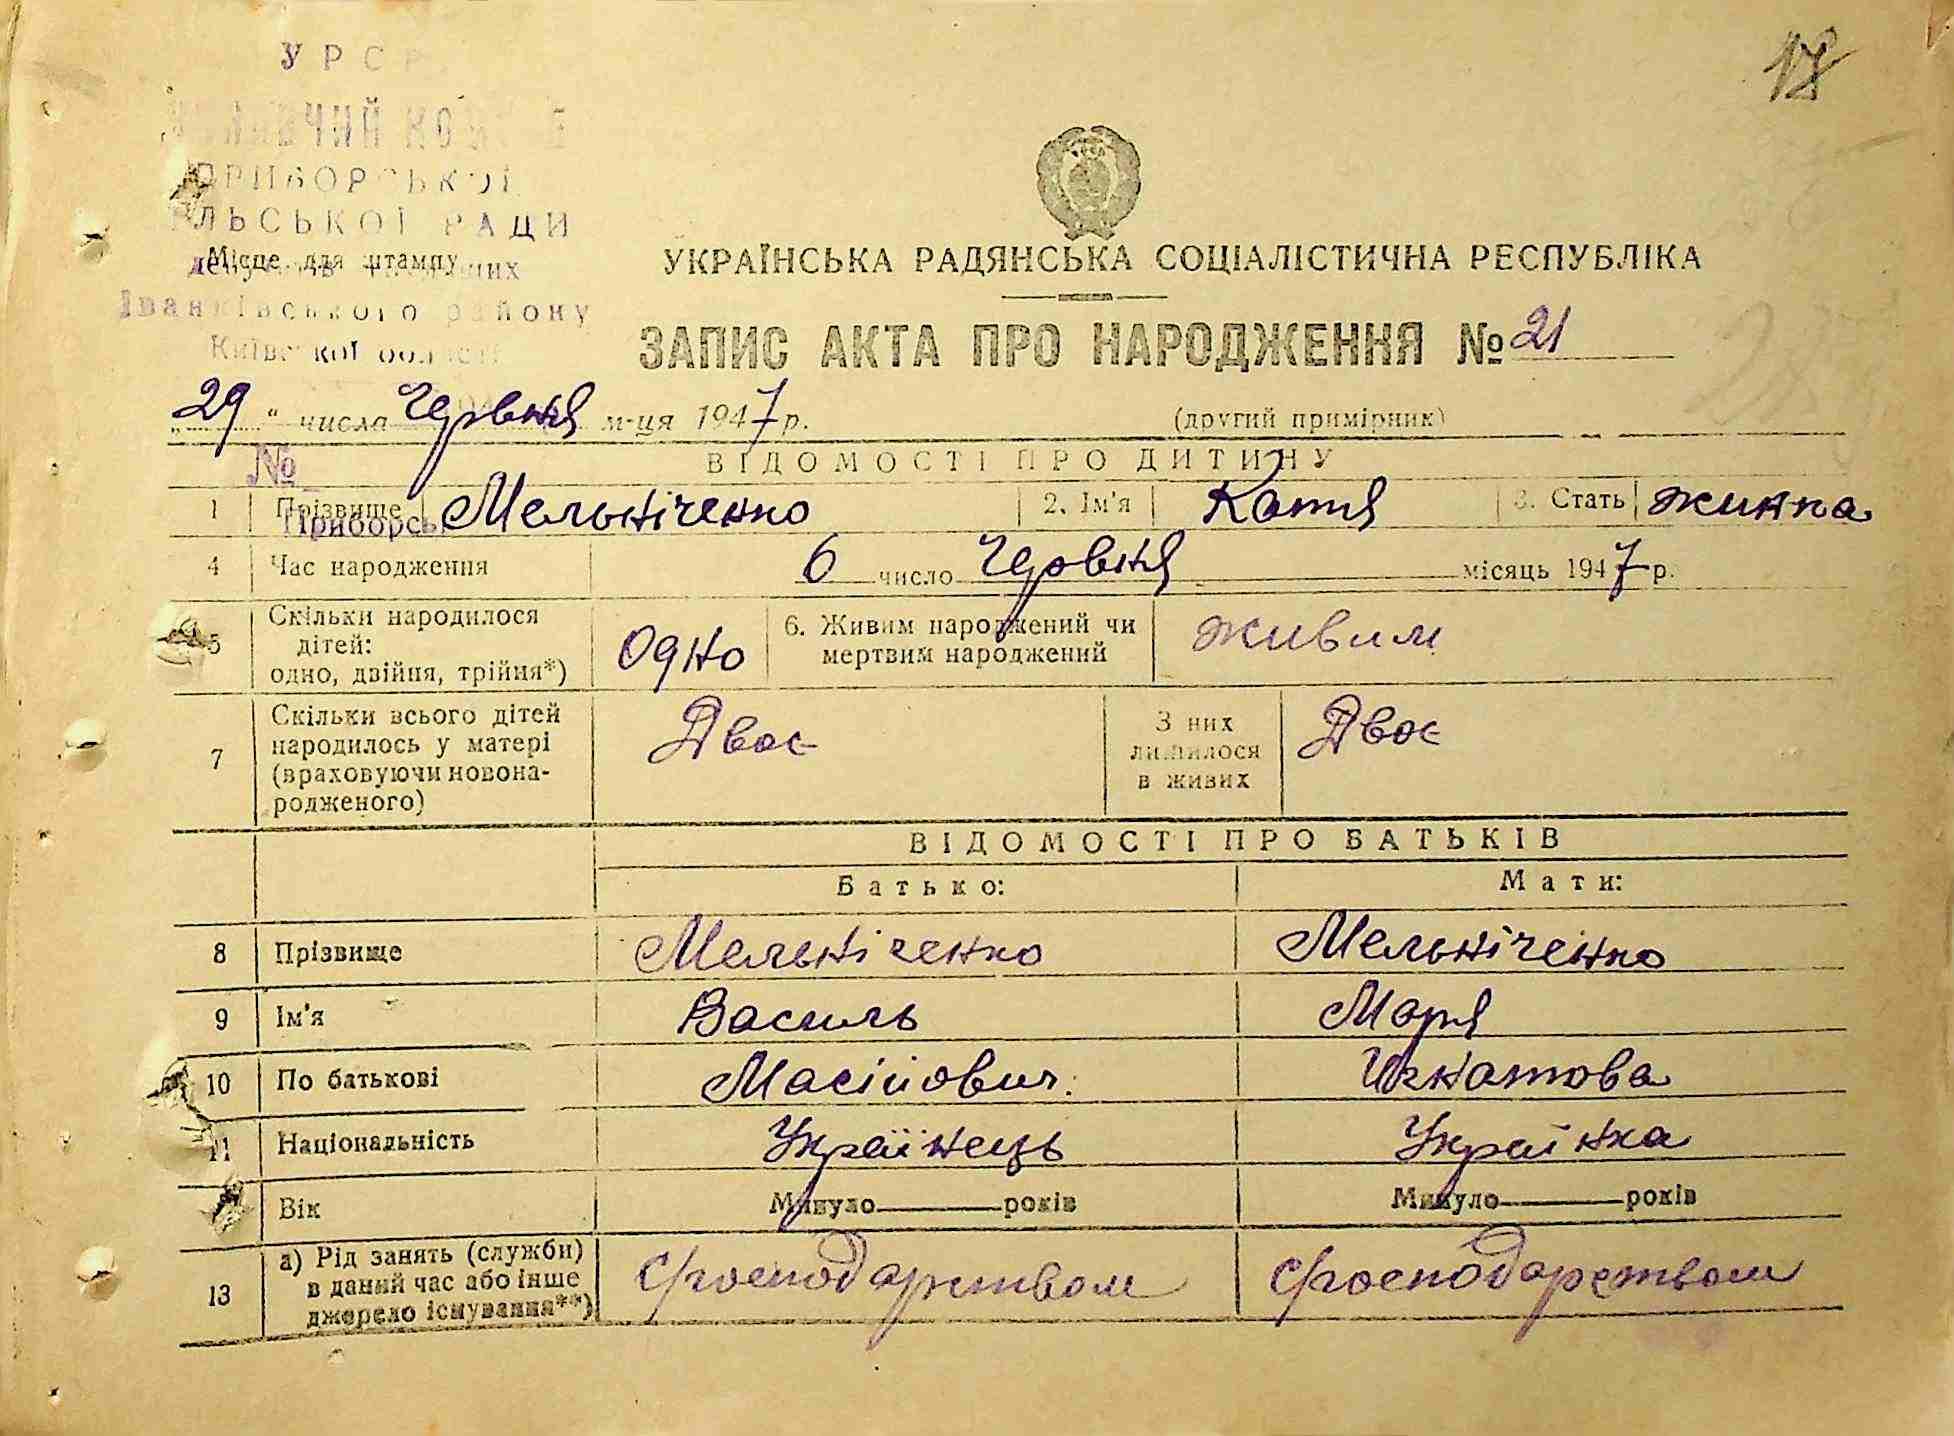 УРСР
ПРИБОРСЬКОЇ
СІЛЬСЬКОЇ РАДИ
Місце для штампу
Іванківського району
Київської області
18
УКРАЇНСЬКА РАДЯНСЬКА СОЦІАЛІСТИЧНА РЕСПУБЛІКА
ЗАПИС АКТА ПРО НАРОДЖЕННЯ № 21
„29“ числа Червня м-ця 1947 р. (другий примірник)
№
ВІДОМОСТІ ПРО ДИТИНУ
1 Прізвище Мельніченко 2. Ім'я Катя 3. Стать жинка
4 Час народження 6 число Червня місяць 1947 р.
5 Скільки народилося дітей: одно, двійня, трійня*) Одно 6. Живим народжений чи мертвим народжений живим
7 Скільки всього дітей народилось у матері (враховуючи новонародженого) Двоє З них лишилося в живих Двоє
ВІДОМОСТІ ПРО БАТЬКІВ
Батько: Мати:
8 Прізвище Мельніченко Мельніченко
9 Ім'я Василь Маря
10 По батькові Масійович. Игнатова
11 Національність Українець Українка
Вік Минуло років Минуло років
13 а) Рід занять (служби) в даний час або інше джерело існування**) с/господарством с/господарством